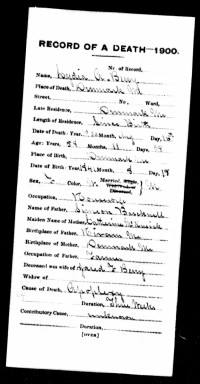 RECORD OF A DEATH—1900.
No. of Record,
Name, Lydia A. Berry
Place of Death, Denmark Me
Street, No. Ward,
Late Residence, Denmark Me
Length of Residence, Since Birth
Date of Death: Year, 1900 Month, Aug Day, 16
Age: Years, Months, 11 Days,
Place of Birth Denmark Me
Date of Birth: Year, Month, Day, 18
Sex, F Color, W Married, Single, Widowed or Divorced, M.
Occupation, Housewife
Name of Father,
Maiden Name of Mother, Catherine
Birthplace of Father, Hiram Me
Birthplace of Mother, Denmark Me
Occupation of Father, Farmer
Deceased was wife of Jared F Berry
Widow of
Cause of Death, Apoplexy
Duration, Three Weeks
Contributory Cause, unknown
Duration,
[OVER]